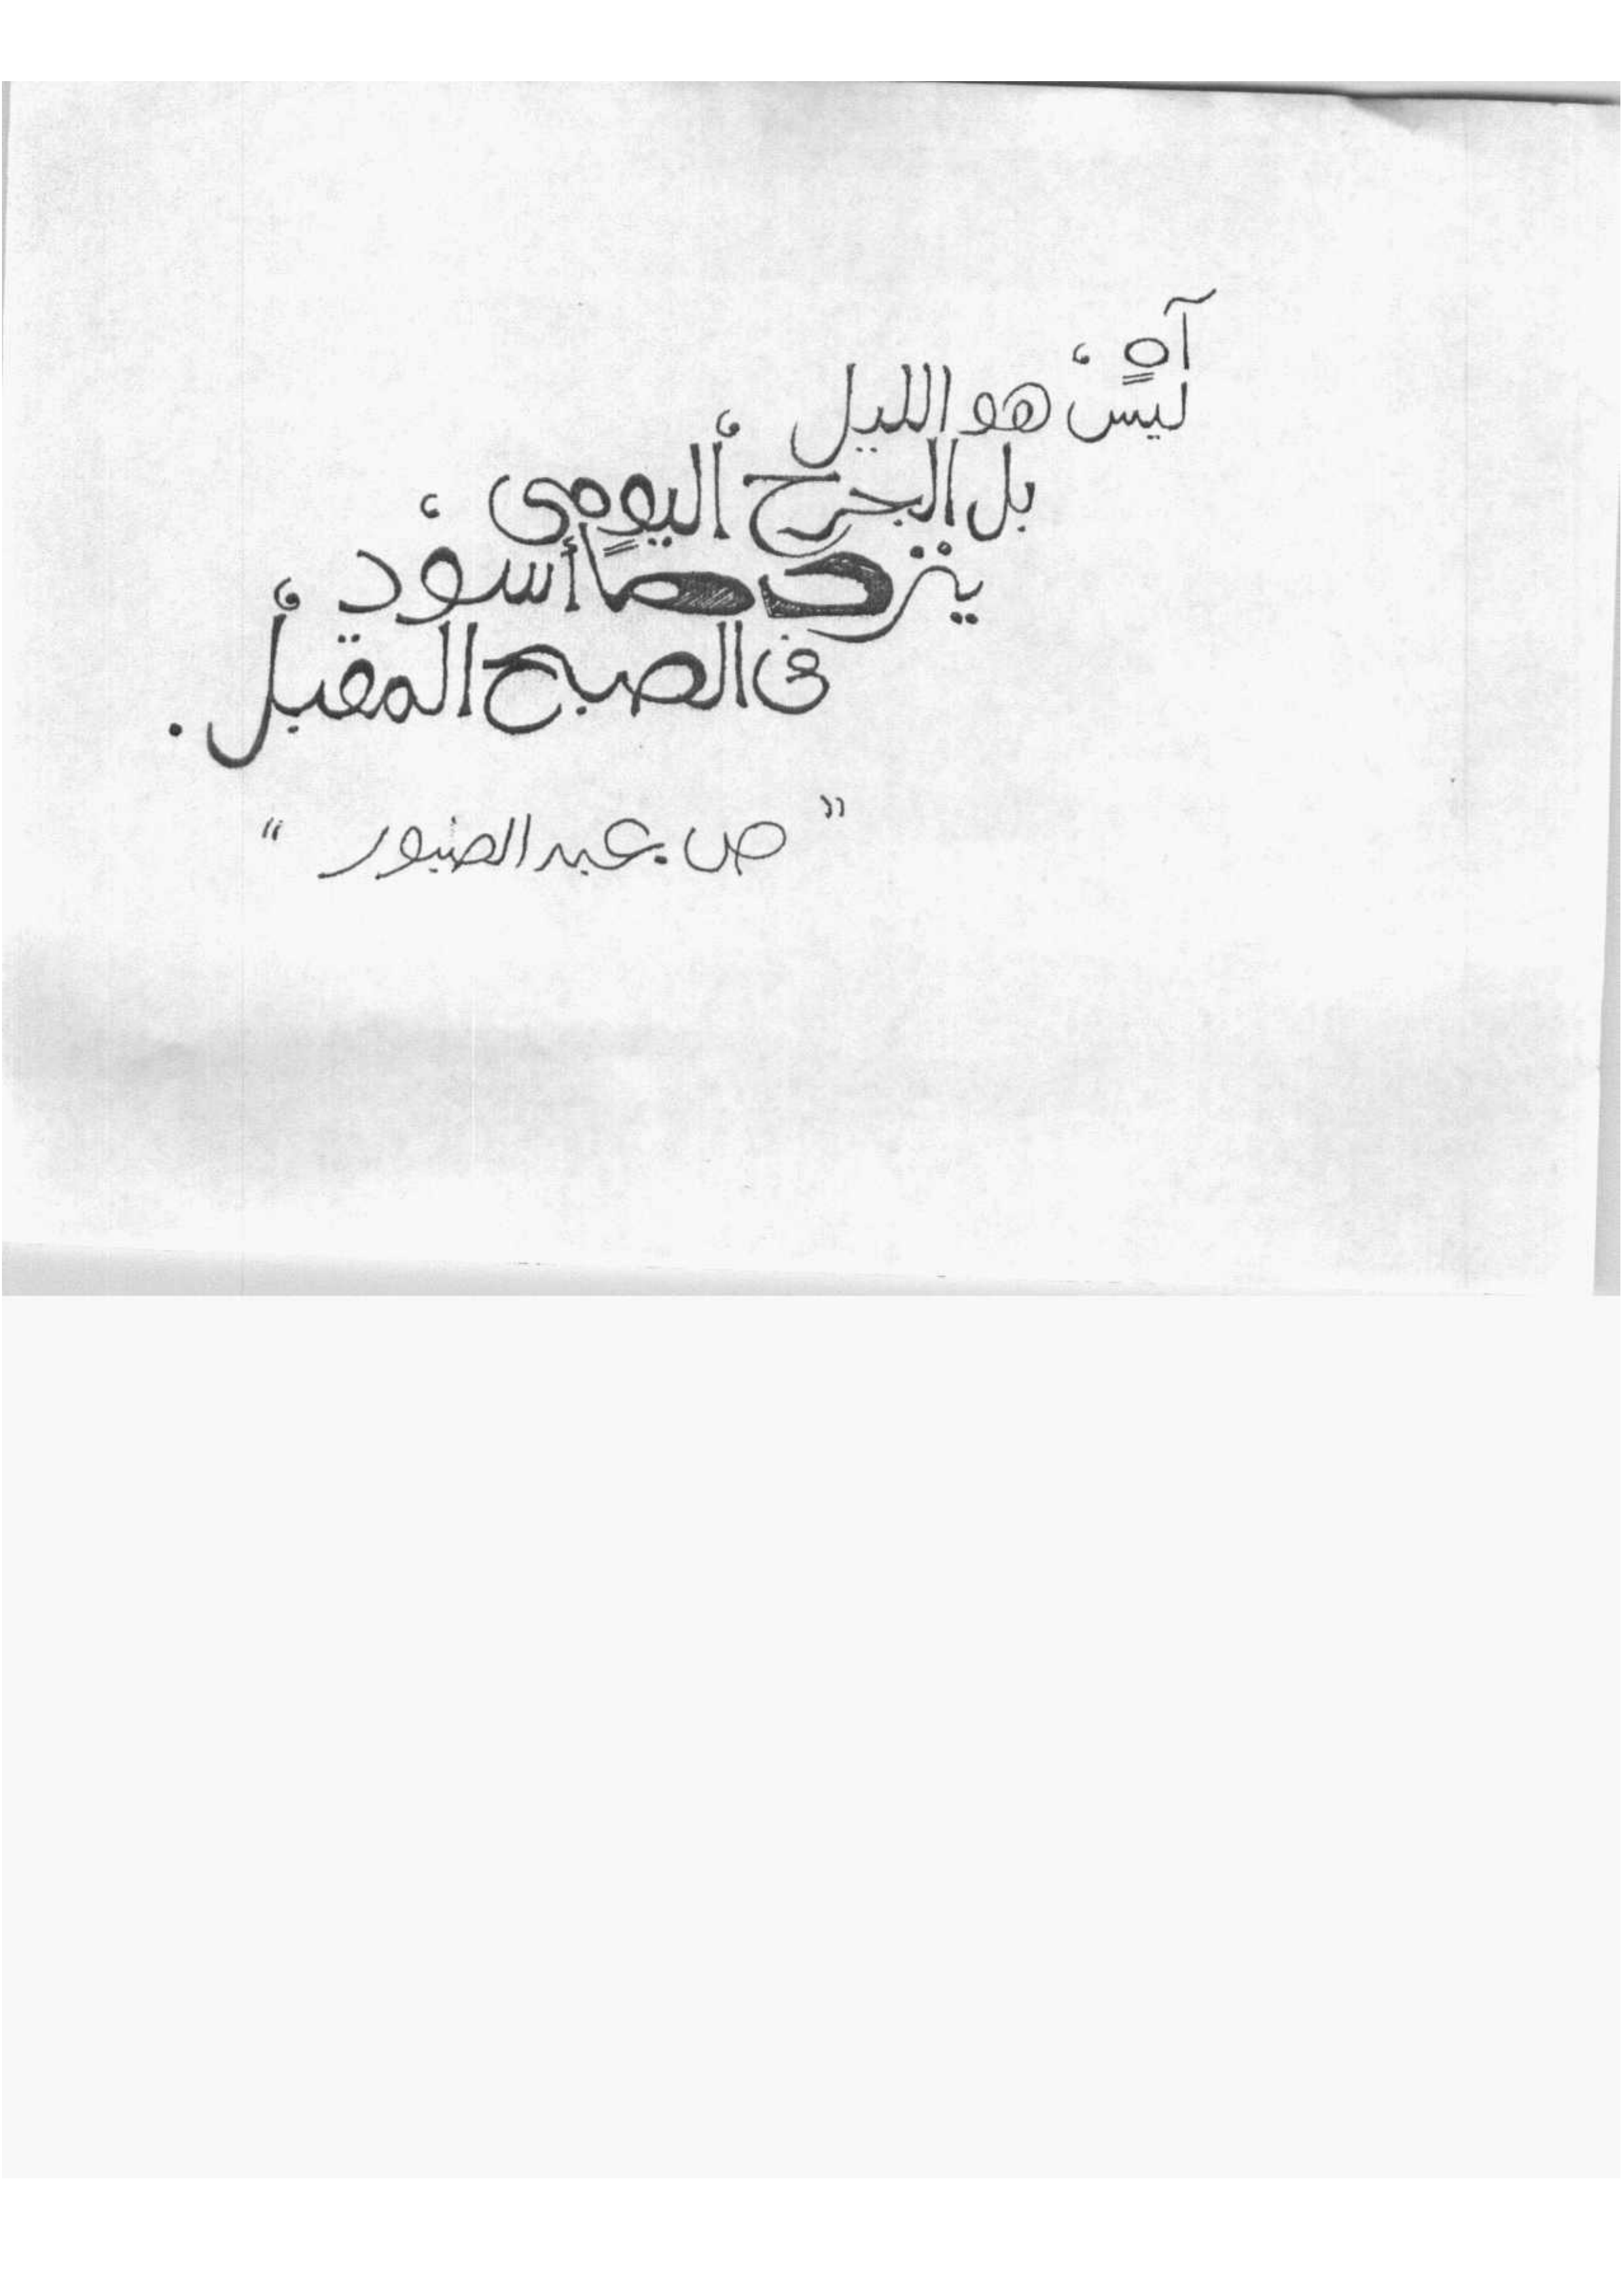 آهٍ ،
ليس هو الليل
بل الجرح اليومى ،
ينز دمًا أسود ،
فى الصبح المقبل .
" ص . عبد الصبور "